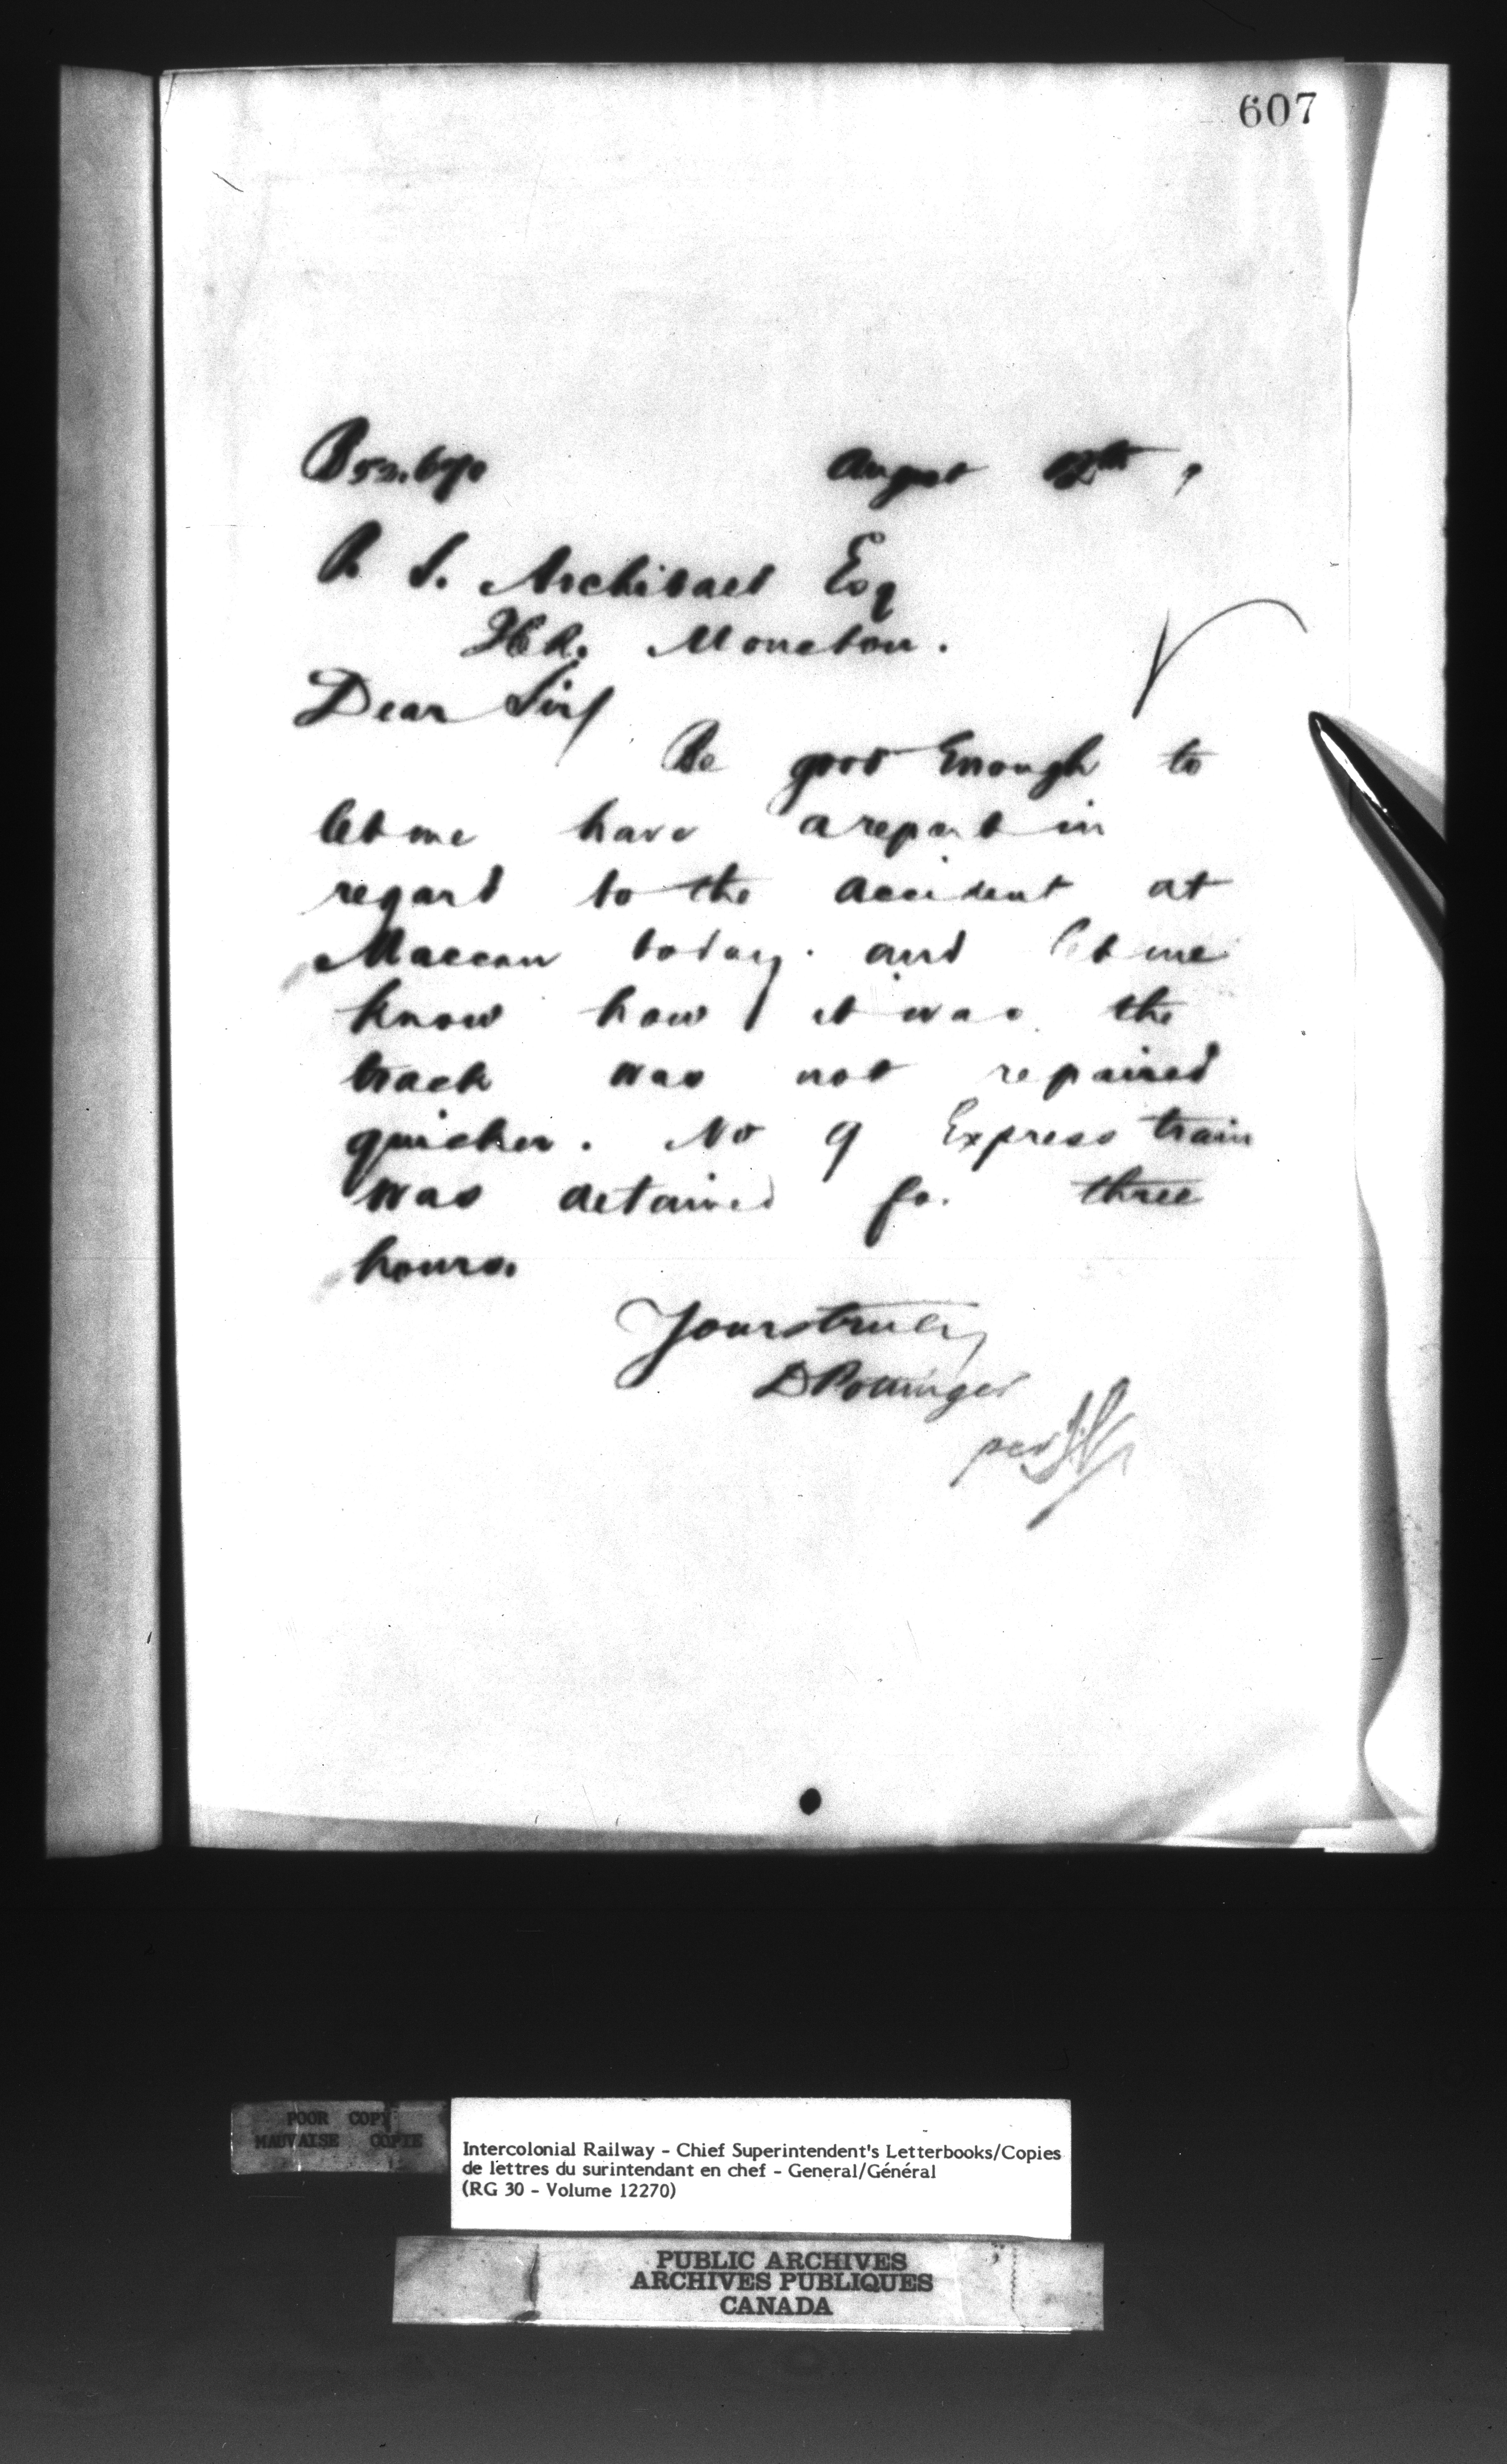 607
August 12th,
P. S. Archibald Esq
Moncton.
Dear Sir/
Be good Enough to
let me have a report in
regard to the accident at
Maccan today. and let me
know how it was the
track was not repaired
quicker. No 9 Express train
was detained for three
hours.
Yours truly
D Pottinger
per
POOR COPY
MAUVAISE COPIE
Intercolonial Railway - Chief Superintendent's Letterbooks/Copies
de lettres du surintendant en chef - General/Général
(RG 30 - Volume 12270)
PUBLIC ARCHIVES
ARCHIVES PUBLIQUES
CANADA